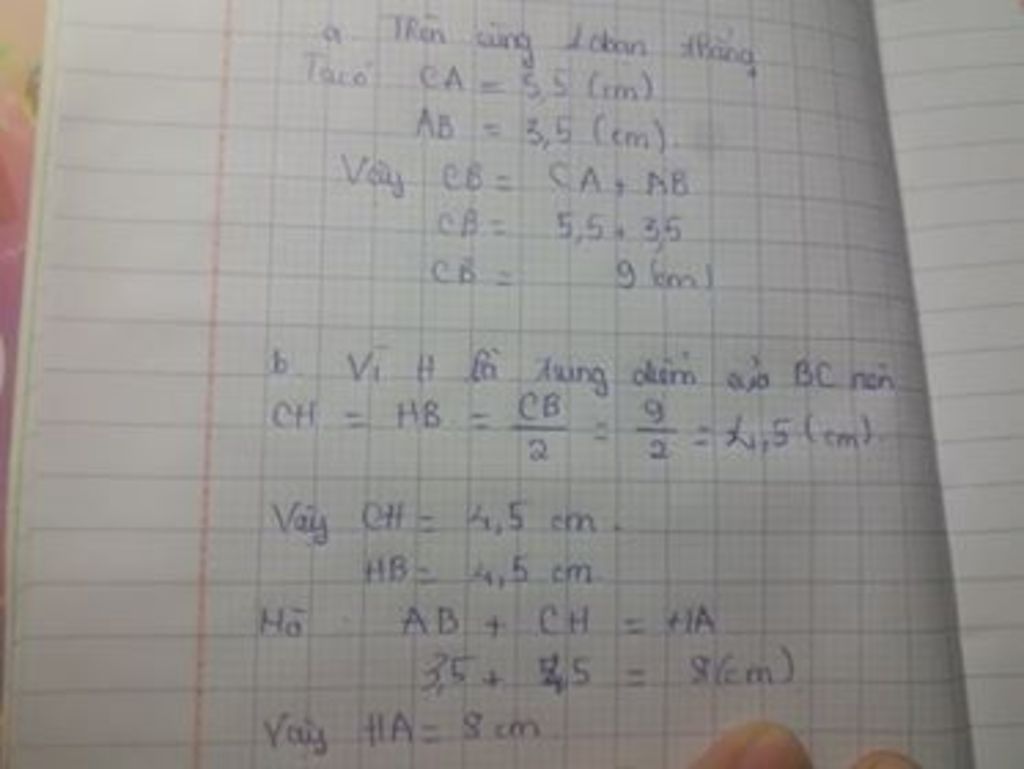 a Trên cùng 1 đoạn thẳng
Ta có CA = 5,5 (cm)
AB = 3,5 (cm).
Vậy CB = CA + AB
CB = 5,5 + 3,5
CB = 9 (cm)
b Vì H là trung điểm của BC nên
CH = HB = CB/2 = 9/2 = 4,5 (cm).
Vậy CH = 4,5 cm.
HB = 4,5 cm
Mà AB + CH = HA
3,5 + 4,5 = 8 (cm)
Vậy HA = 8 cm